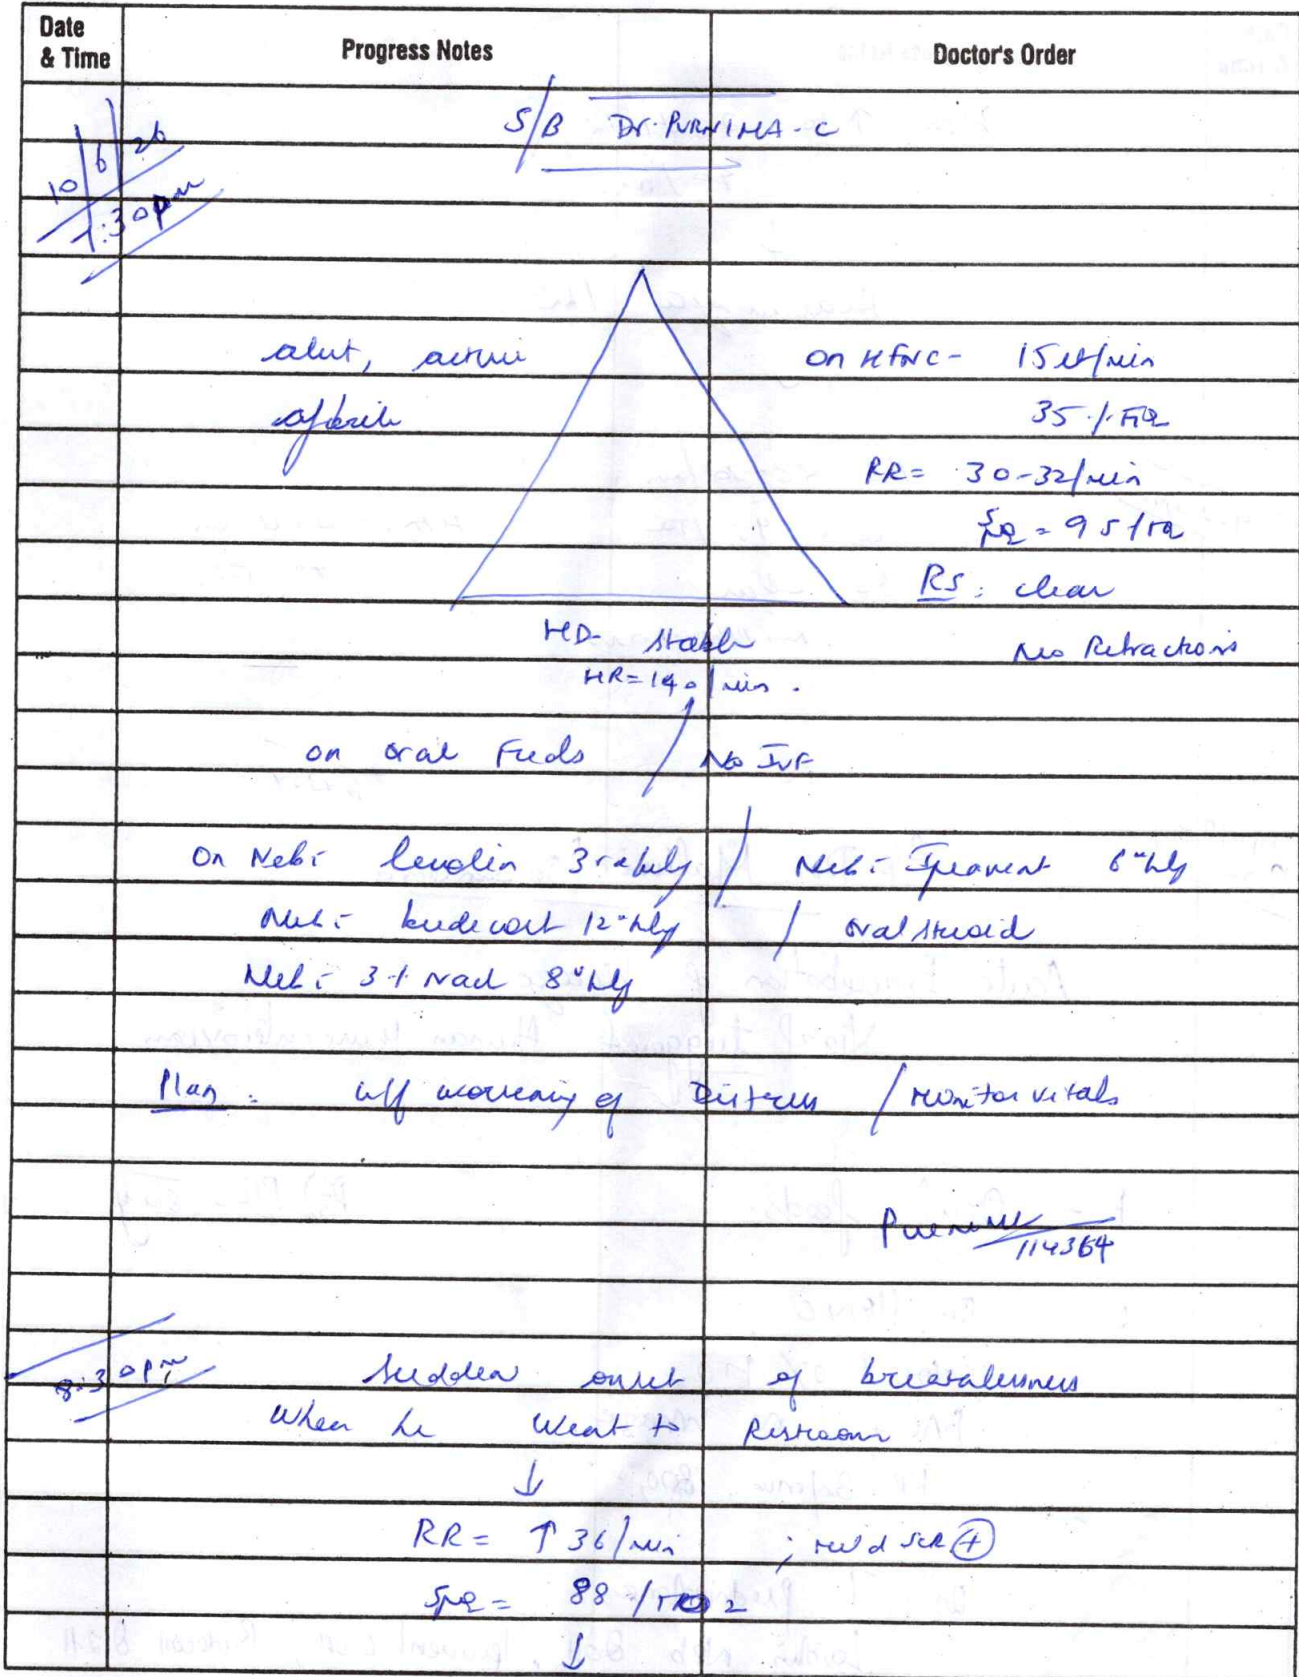 Date & Time Progress Notes Doctor's Order
S/B Dr. PURNIMA - C
10/6/26
7:30pm
alert, active on HFNC - 15 lt/min
afebrile 35 % FiO2
RR = 30-32/min
SpO2 = 95 / FiO2
RS : clear
HD - Stable No Retractions
HR = 140/min.
on oral Feeds / No IVF
On Neb: levolin 3rd hrly / Neb: Ipravent 6th hly
Neb: budecort 12th hly / oral steroid
Neb: 3% Nacl 8th hly
Plan : w/f worsening of Distress / monitor vitals
114364
8:30pm Sudden onset of breathlessness
When he Went to Restroom
↓
RR = ↑ 36/min ; mild SCR +
SpO2 = 88
↓